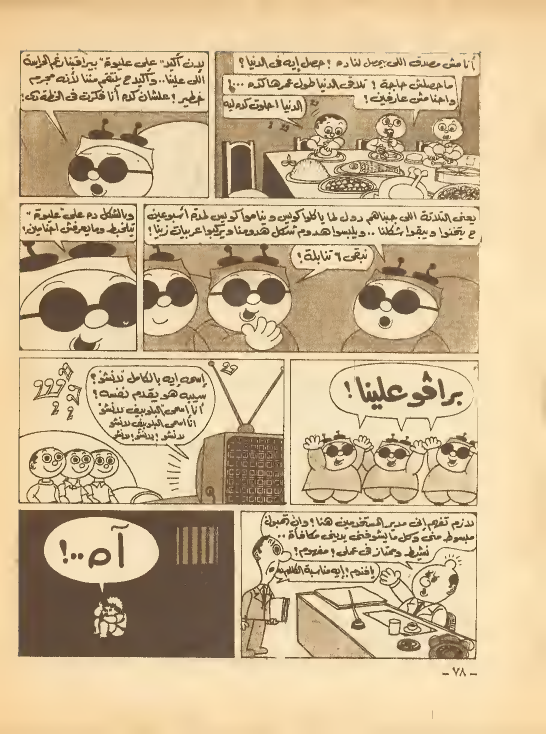 أنا مش مصدق اللى بيحصل لنا ده ! حصل إيه فى الدنيا ؟
ما حصلش حاجة ! تلاقى الدنيا طول عمرها كده ...!
واحنا مش عارفين !
الدنيا احلوت كده ليه
لابد أكيد " على عليوة " بيراقبنا رغم الحراسة
اللى علينا .. وأكيد ح ينتقم مننا لأنه مجرم
خطير ! علشان كده أنا فكرت فى الخطة دى !
يعنى التلاتة اللى جبناهم دول لما ياكلوا كويس و يناموا كويس لمدة أسبوعين
ح يتخنوا و يبقوا شكلنا .. و يلبسوا هدوم شكل هدومنا و يركبوا عربيات زينا !
نبقى ٦ تنابلة !
وبالشكل ده على عليوة "
يتلخبط وما يعرفش احنا مين !
براڤو علينا !
اسمه إيه بالكامل لانشو ؟
سيبه هو يقدم نفسه !
أنا اسمى البلوبيف لانشو
أنا اسمى البلوبيف لانشو
لانشو ! لانشو ! لانشو
لازم تفهم إنى مدير المستخدمين هنا ! وانى تهمبول
مبسوط منى وكل ما يشوفنى يدينى مكافأة ..
نشيط وممتاز فى عملى ! مفهوم !
يا فندم ! إيه مناسبة الكلام ده
آه ..!
- ٧٨ -